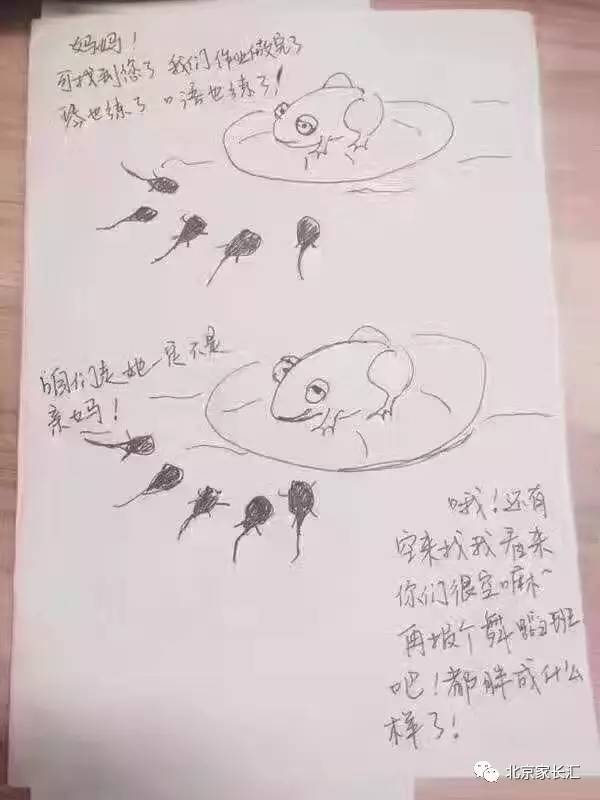 妈妈!
可找到您了 我们作业做完了
琴也练了 口语也练了!
咱们走 她一定不是
亲妈!
哦!还有
空来找我 看来
你们很空嘛~
再报个舞蹈班
吧!都胖成什么
样了!
北京家长汇